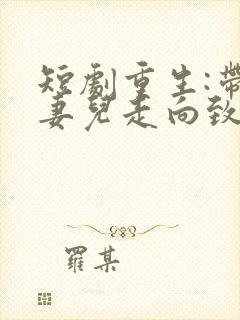 短劇重生:帶
妻兒走向致
羅某